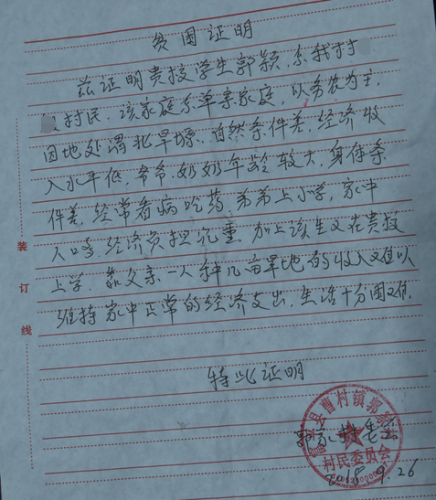 贫困证明
兹证明贵校学生郭颖，系我村村
村民，该家庭系单亲家庭，以务农为主，
因地处渭北旱塬，自然条件差，经济收
入水平低，爷爷、奶奶年龄较大，身体条
件差，经常看病吃药，弟弟上小学，家中
人口多，经济负担沉重，加上该生又在贵校
上学，靠父亲一人种几亩旱地的收入难以
维持家中正常的经济支出，生活十分困难。
特此证明
县曹村镇郭
村民委员会
郭家村委会
9.26
装
订
线